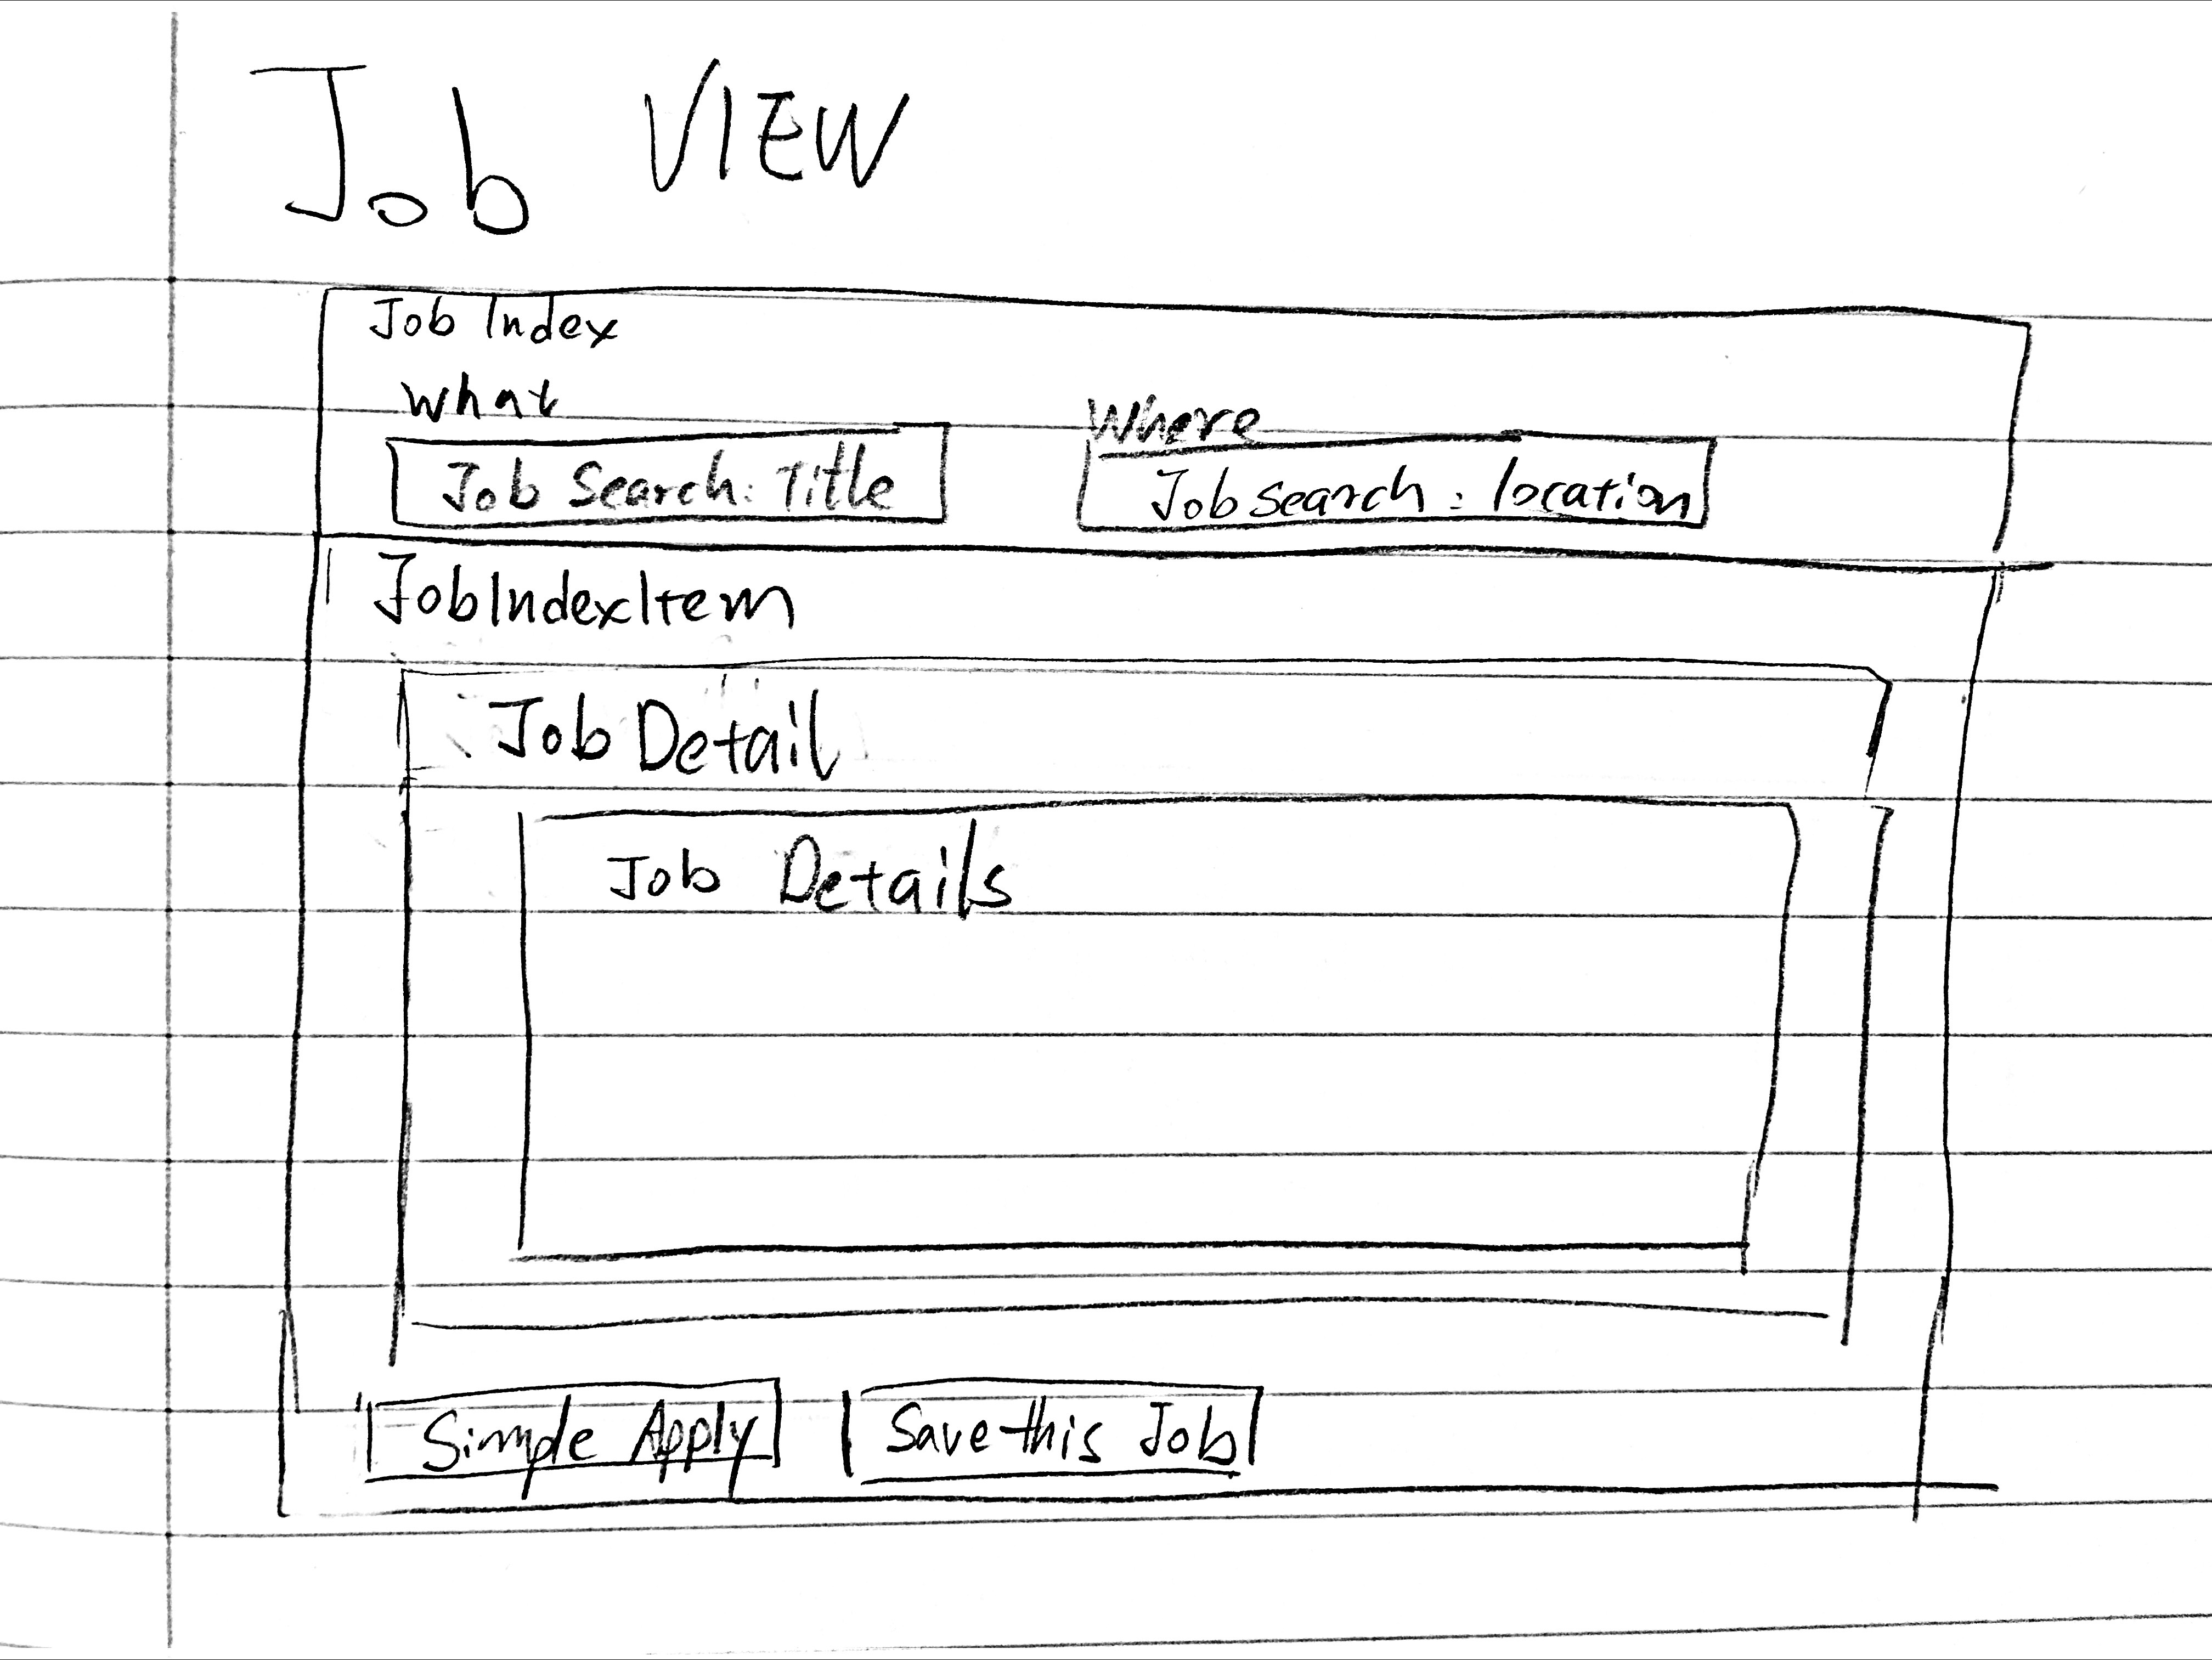 Job VIEW
Job Index
What
Where
Job Search: Title
Job search: location
JobIndexItem
Job Detail
Job Details
Simple Apply
Save this Job